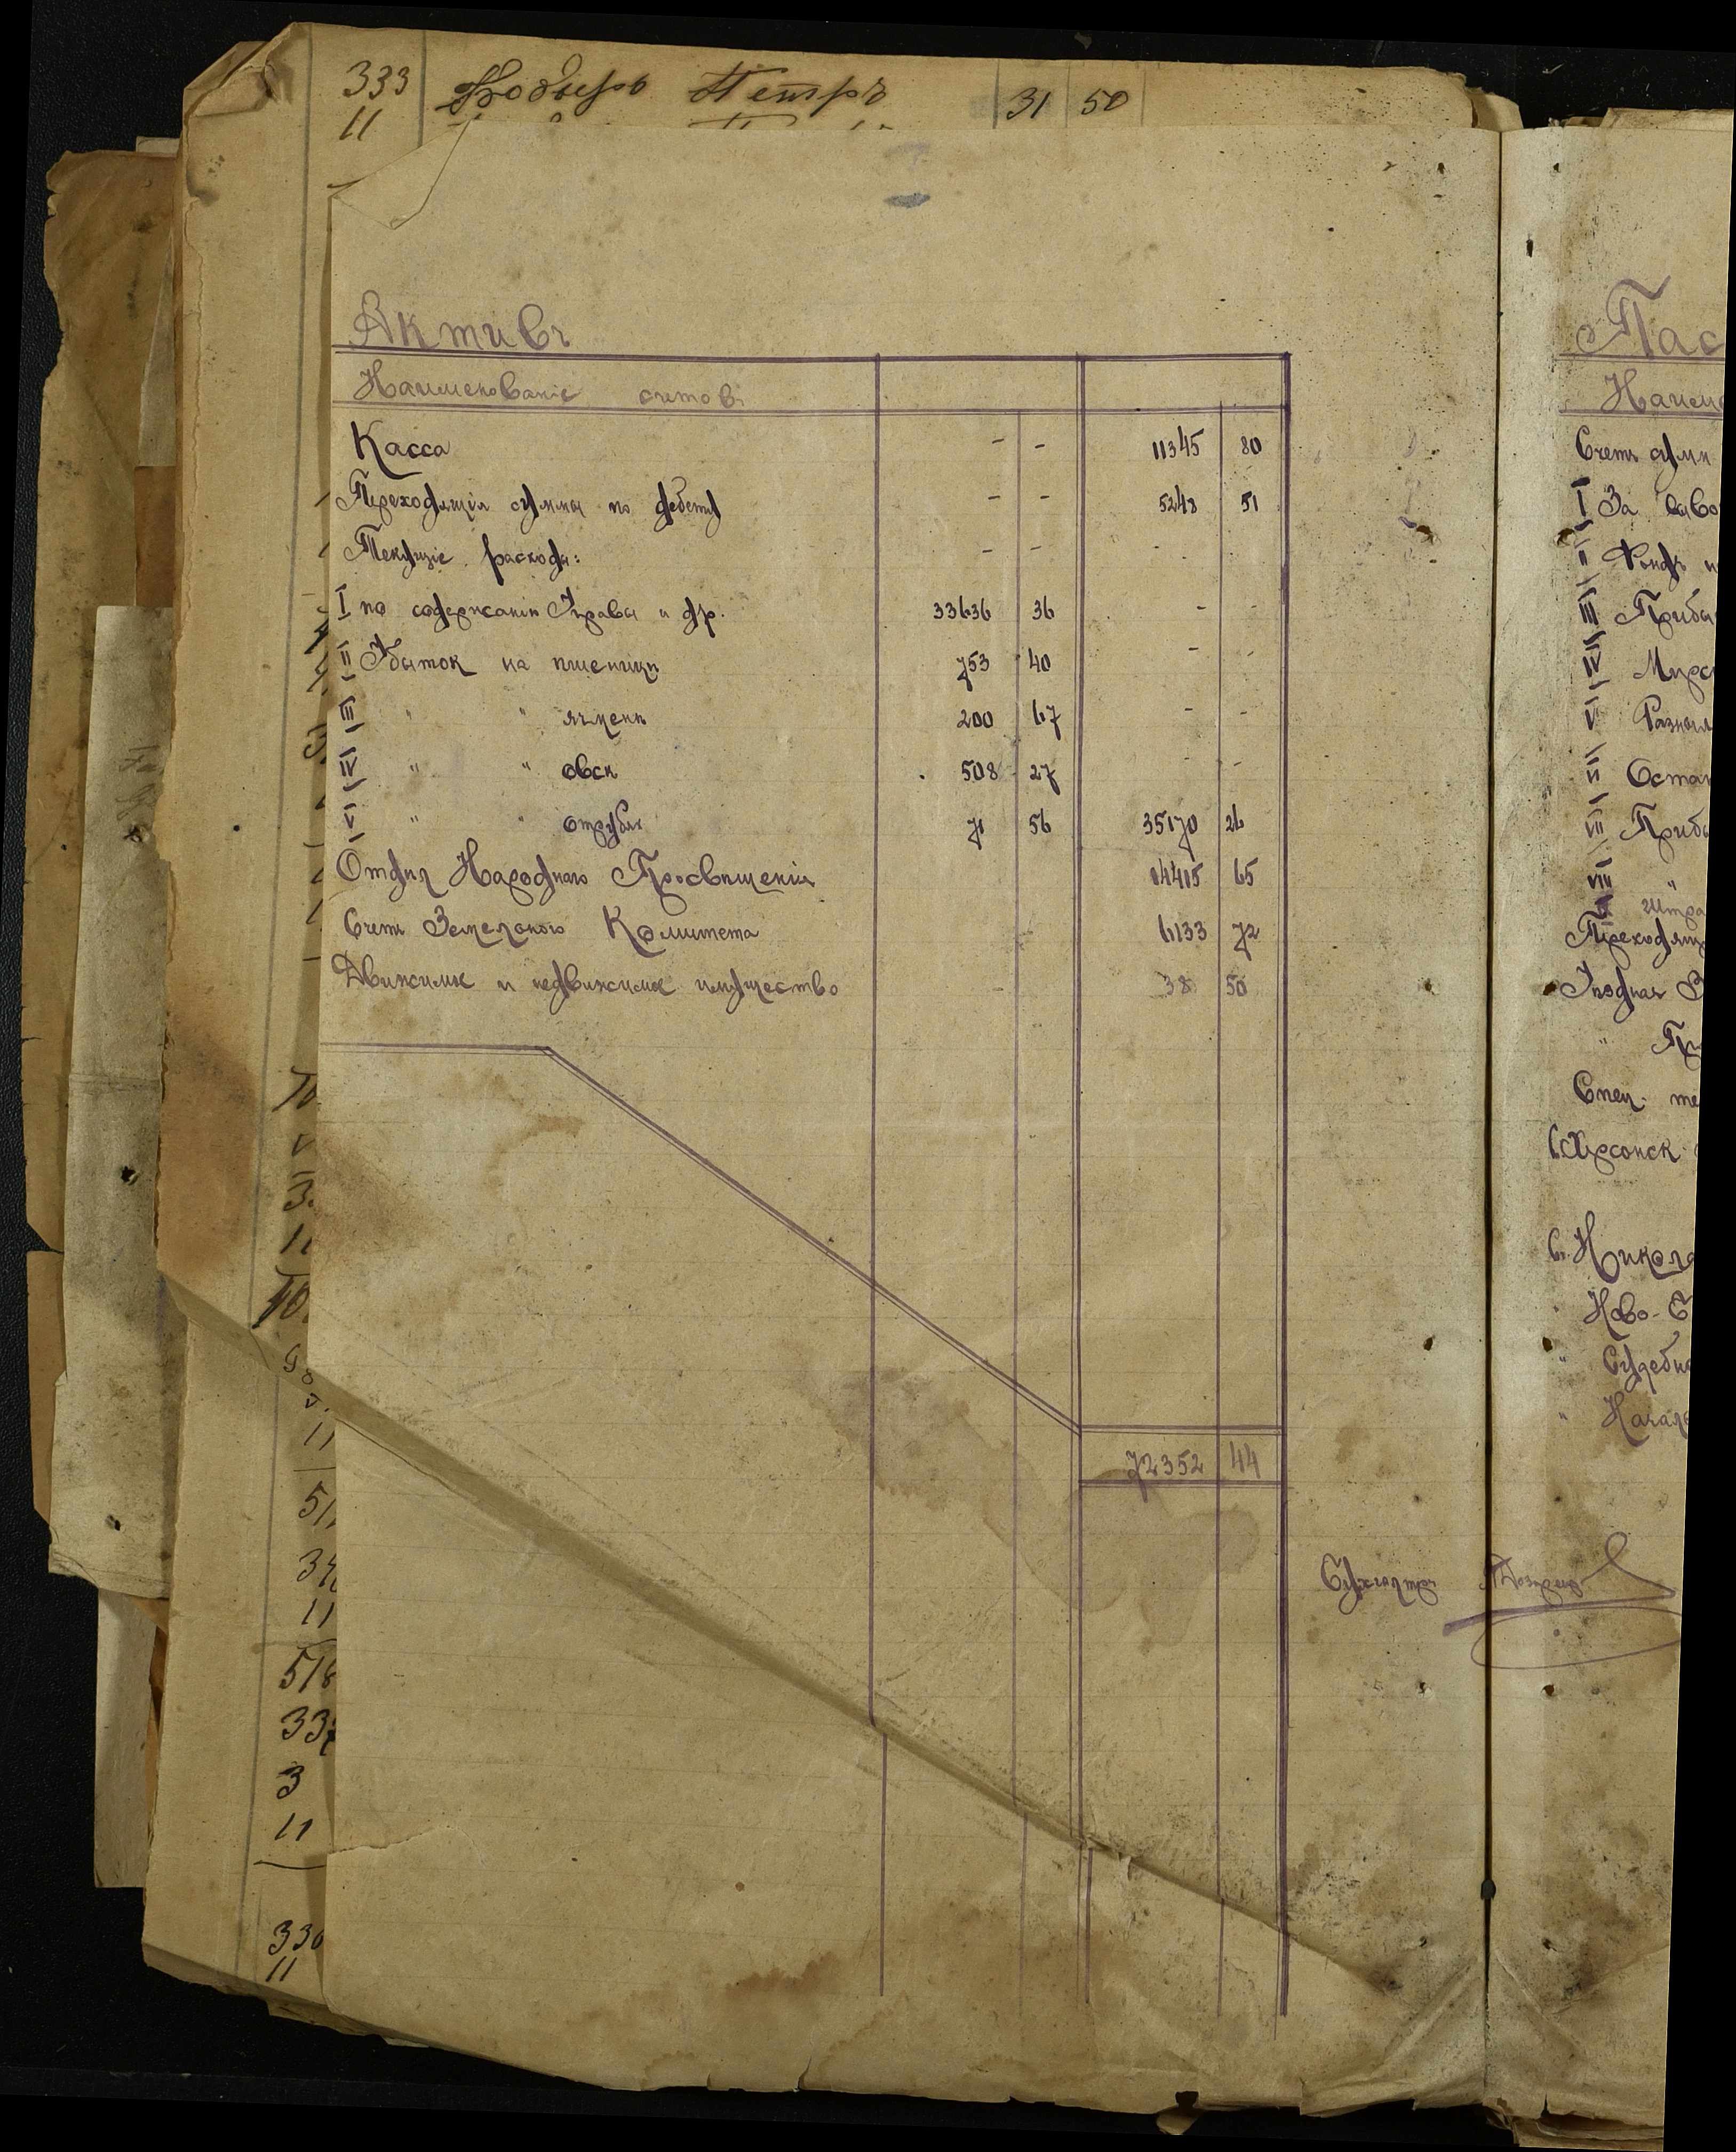 333 Петръ 31 50
11
Активъ
Наименованіе счетовъ
Касса - - 11345 80
Переходящія суммы по дебету - - 5248 51
Текущіе расходы: - - - -
I по содержанію Управы и др. 33636 36 - -
II Убыток на пшеницѣ 753 40 - -
III " " ячменѣ 200 67 - -
IV " " овсѣ 508 27 - -
V " " отрубях 71 56 35170 26
Отдѣл Народнаго Просвѣщенія 14415 65
Счетъ Земельнаго Комитета 6133 72
Движимое и недвижимое имущество 38 50
72352 44
Бухгалтеръ
Пас
Наиме
Счетъ сумм
I За
II Фондъ
III Прибы
IV Мирс
V Разныя
VI Остат
VII Прибы
VIII "
IX Штра
Переходящ
Уподная З
" Пр
Спец. те
Херсонск
Никола
" Ново-
" Судебн
" Началь
10
11
51
11
518
33
3
11
330
11